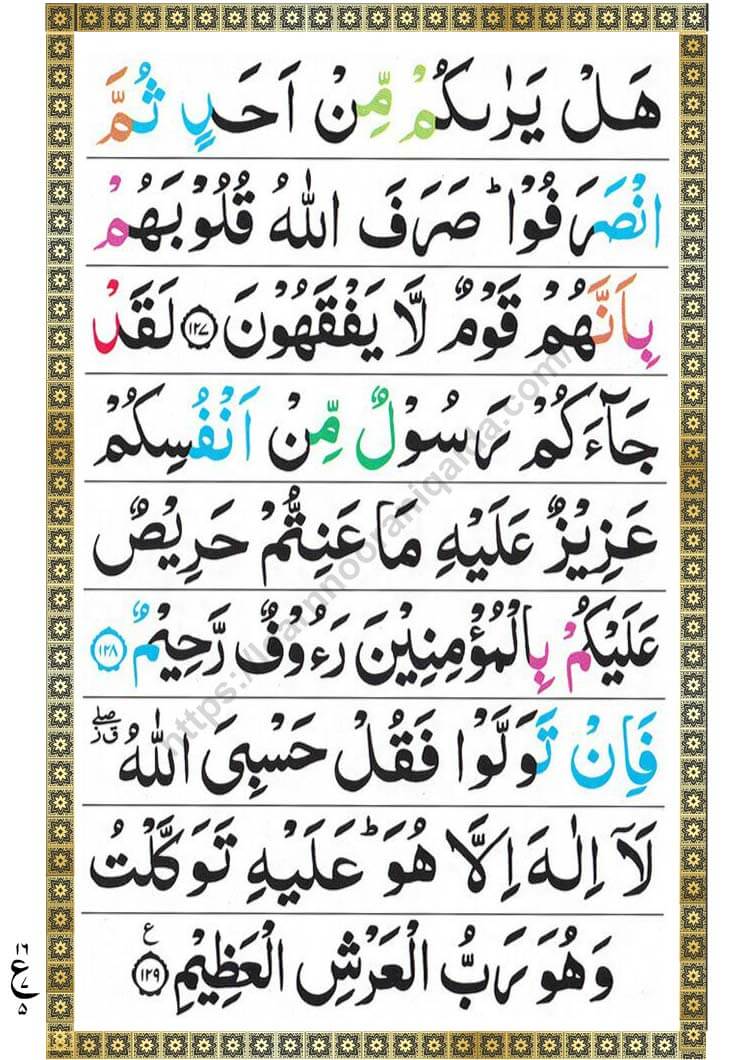 هَلْ يَرٰىكُمْ مِّنْ اَحَدٍ ثُمَّ
انْصَرَفُوْا ؕ صَرَفَ اللّٰهُ قُلُوْبَهُمْ
بِاَنَّهُمْ قَوْمٌ لَّا يَفْقَهُوْنَ ﴿۱۲۷﴾ لَقَدْ
جَآءَكُمْ رَسُوْلٌ مِّنْ اَنْفُسِكُمْ
عَزِيْزٌ عَلَيْهِ مَا عَنِتُّمْ حَرِيْصٌ
عَلَيْكُمْ بِالْمُؤْمِنِيْنَ رَءُوْفٌ رَّحِيْمٌ ﴿۱۲۸﴾
فَاِنْ تَوَلَّوْا فَقُلْ حَسْبِىَ اللّٰهُ ۖ ق ز صلے
لَآ اِلٰهَ اِلَّا هُوَ ؕ عَلَيْهِ تَوَكَّلْتُ
وَهُوَ رَبُّ الْعَرْشِ الْعَظِيْمِ ﴿۱۲۹﴾ ع
۱۶
ع ۷
۵
https://learnnooraniqaida.com/